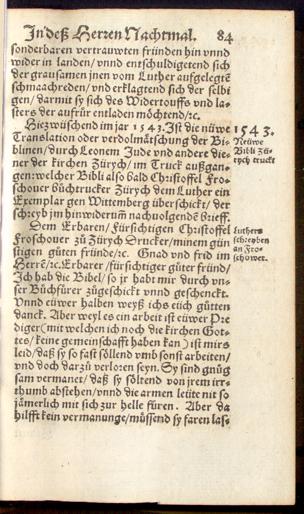 In deß Herren Nachtmal. 84
sonderbaren vertrauwten fründen hin vnnd
wider in landen/ vnnd entschuldigetend sich
der grausamen jnen vom Luther aufgelegtẽ
schmaachreden/ vnd erklagtend sich der selbi
gen/ darmit sy sich des Widertouffs vnd la-
sters der aufrur entladen möchtend/ ꝛc.
Hiezwüschend im jar 1543. Ist die nüwe
Translation oder verdolmätschung der Bi-
blinen/ durch Leonem Jude vnd andere die-
ner der kirchen Zürych/ im Truck außgan-
gen: welcher Bibli also bald Christoffel Fro-
schouer büchtrucker Zürych dem Luther ein
Exemplar gen Wittemberg überschickt/ der
schreyb jm hinwiderum̃ nachuolgende brieff.
Dem Erbaren/ Fürsichtigen Christoffel
Froschouer zu Zürych Drucker/ minem gün
stigen güten fründe/ ꝛc. Gnad vnd frid im
Herrẽ/ ꝛc. Erbarer/ fürsichtiger güter fründ/
Ich hab die Bibel/ so jr habt mir durch vn-
ser Büchfürer zügeschickt vnnd geschenckt.
Vnnd eüwer halben weyß ichs eüch gütten
danck. Aber weyl es ein arbeit ist eüwer Pre
diger (mit welchen ich noch die kirchen Got-
tes/ keine gemeinschafft haben kan) ist mirs
leid/ daß sy so fast söllend vmb sonst arbeiten/
vnd doch darzü verloren seyn. Sy sind gnüg
sam vermanet/ daß sy söltend von jrem irr-
thumb abstehen/ vnnd die armen leüte nit so
jämerlich mit sich zur helle füren. Aber da
hilfft kein vermanunge/ müssend sy faren las-
1543.
Neüwe
Bibli Zü-
rych truckt
Luthers
schreyben
an Fro-
schower.